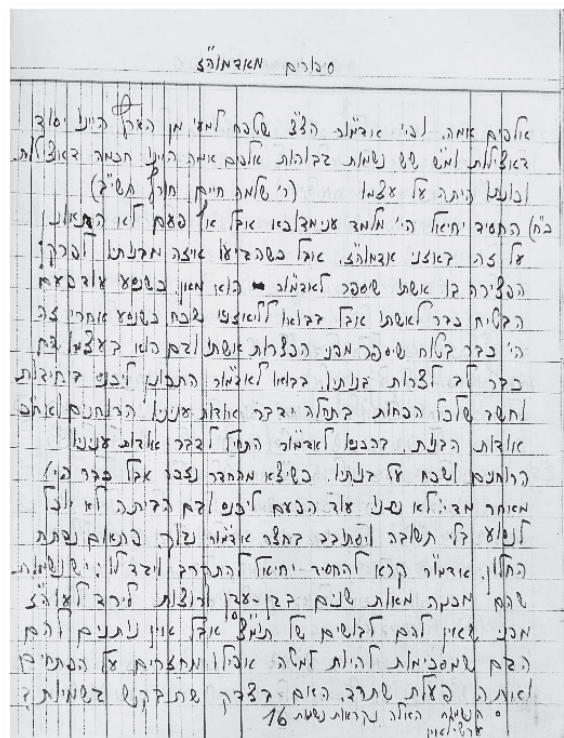 סיפורים מאדמוה"ז
אלפים אמה. ולפי אדמו"ר הצ"צ שלפת למעי' מן הערך היינו יסוד
דאצילות ומ"ש שש נשמות גבוהות אלפים אמה היינו חכמה דאצילות
וכוונתו היתה על עצמו (ר' שלמה חיים, חורף תשי"ב)
כ"ח) החסיד יחיאל הי' מלמד אבל אף פעם לא התאונן
על זה באזני אדמוה"ז. אבל כשהגיעו איזה מבנותיו לפרקן
הפצירה בו אשתו שיספר לאדמו"ר הוא מאן. כשנסע עוד פעם
הבטיח כבר לאשתו אבל בבואו לליאזנא שכח כשנסע אחרי זה
הי' כבר בטוח שיספר מפני הפצרות אשתו וגם הוא בעצמו שם
כבר לב לצרות בנותיו. בבואו לאדמו"ר התכונן ליכנס ביחידות
וחשב שלכל הפחות בתחלה ידבר אודות עניניו הרוחנים ואח"כ
אודות הבנות. בהכנסו לאדמו"ר התחיל לדבר אודות עניניו
הרוחנים ושכח על בנותיו. כשיצא מהחדר נזכר אבל כבר הי'
מאוחר מדי. לא נתנו עוד הפעם ליכנס וגם הביתה לא יכל
לנסוע בלי תשובה והסתובב בחצר אדמו"ר נבוך. פתאום נפתח
החלון. אדמו"ר קרא להחסיד יחיאל להתקרב ויגד לו: ישנן נשמות
שהם מכמה מאות שנים בגן-עדן ורוצות לירד לעוה"ז
מפני שאין להם לבושים של תומ"צ אבל אין נותנים להם
הגם שמסכימות להיות למטה אפילו מחזרים על הפתחים
ואתה פעלת שתרד. האם בצדק שתבקש בגשמיות?
° הנשמות האלה נקראות נשמות
ערטילאין
16